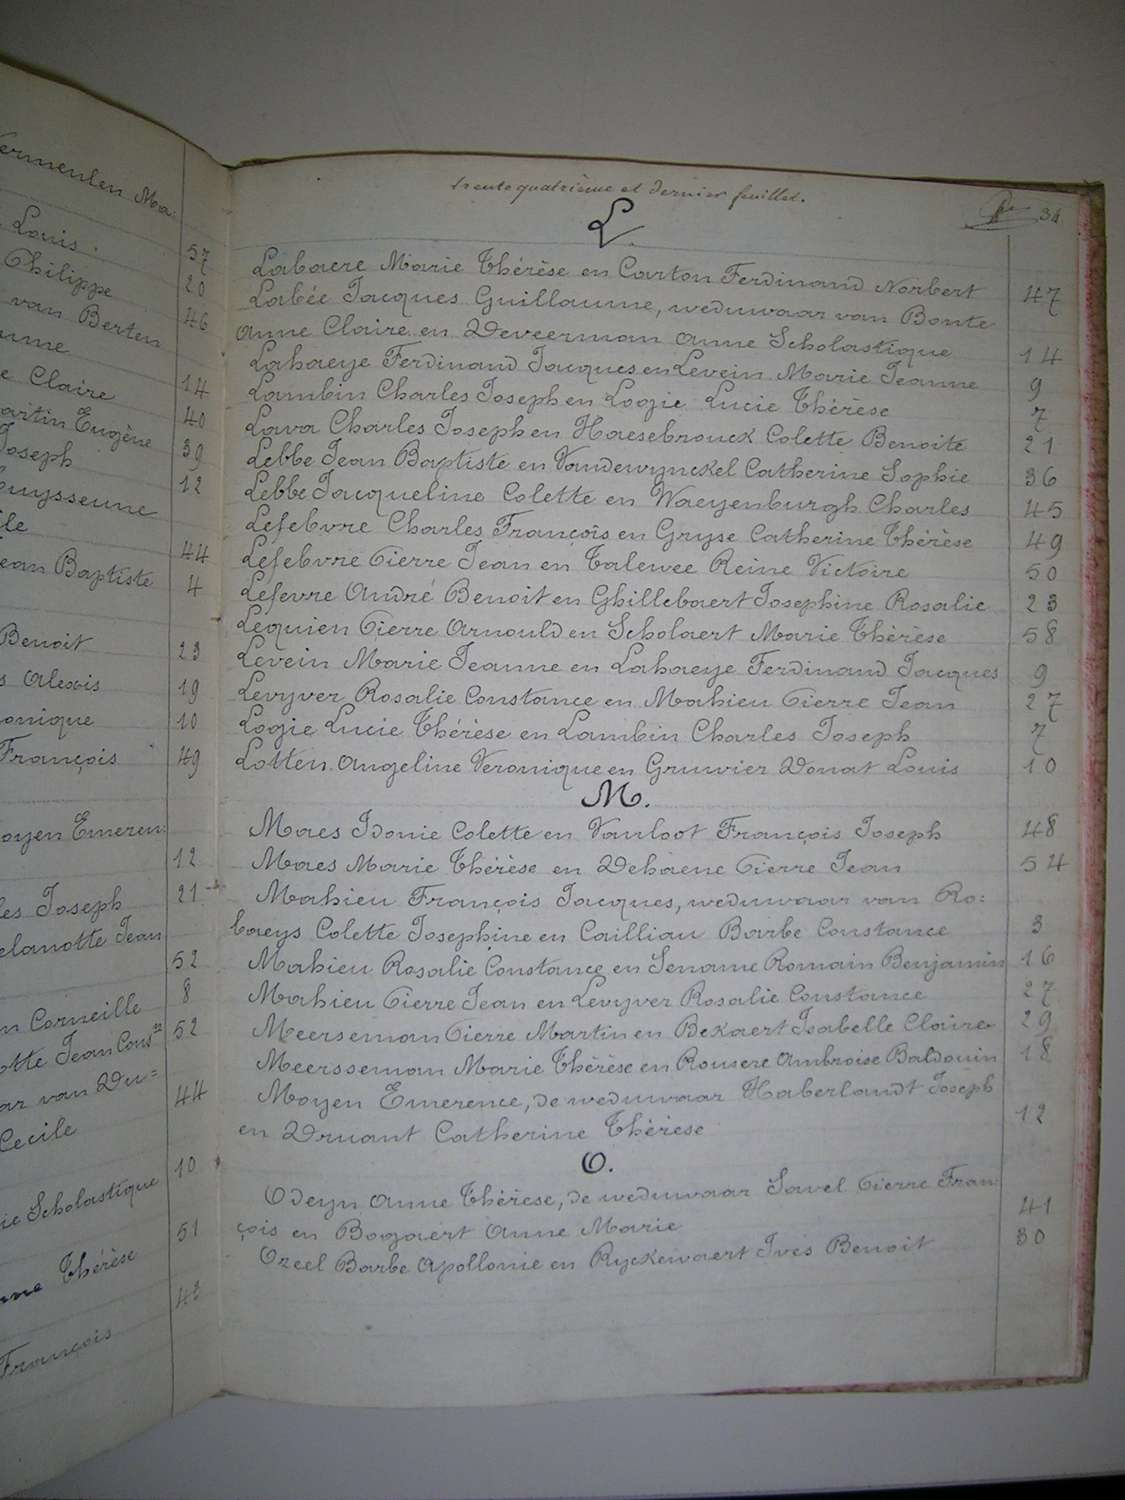 ermeulen Ma:
Louis. 57
Philippe 20
van Berten 46
anne
e Claire 14
artin Eugène 40
Joseph 39
uysseune 12
ile
44
ean Baptiste 4
Benoit 23
s Alexis 19
onique 10
François 49
oyen Emeren:
12
les Joseph 21
elanotte Jean
52
n Corneille 8
otte Jean Const 52
ar van Du=
44
Cecile
10
ie Scholastique
51
nne Thérèse
43
François
trente quatrième et dernier feuillet. 34
L.
Labaere Marie Thérèse en Carton Ferdinand Norbert 47
Labée Jacques Guillaume, weduwaar van Bonte
Anne Claire en Deveerman Anne Scholastique 14
Lahaeye Ferdinand Jacques en Levein Marie Jeanne 9
Lambin Charles Joseph en Logie Lucie Thérèse 7
Lava Charles Joseph en Haesebrouck Colette Benoite 21
Lebbe Jean Baptiste en Vandewynckel Catherine Sophie 36
Lebbe Jacqueline Colette en Waeyenburgh Charles 45
Lefebvre Charles François en Gryse Catherine Thérèse 49
Lefebvre Pierre Jean en Talewee Reine Victoire 50
Lefevre André Benoit en Ghillebaert Josephine Rosalie 23
Lequien Pierre Arnould en Scholaert Marie Thérèse 58
Levein Marie Jeanne en Lahaeye Ferdinand Jacques 9
Levyver Rosalie Constance en Mahieu Pierre Jean 27
Logie Lucie Thérèse en Lambin Charles Joseph 7
Lotten Angeline Veronique en Gruwier Donat Louis 10
M.
Maes Idonie Colette en Vanloot François Joseph 48
Maes Marie Thérèse en Dehaene Pierre Jean 54
Mahieu François Jacques, weduwaar van Ro=
baeys Colette Josephine en Cailliau Barbe Constance 3
Mahieu Rosalie Constance en Sename Romain Benjamin 16
Mahieu Pierre Jean en Levyver Rosalie Constance 27
Meerseman Pierre Martin en Bekaert Isabelle Claire 29
Meersseman Marie Thérèse en Rousere Ambroise Baldouin 18
Moyen Emerence, de weduwaar Haberlandt Joseph
en Druant Catherine Thérèse 12
O.
Odeyn Anne Thérèse, de weduwaar Savel Pierre Fran
çois en Bogaert Anne Marie 41
Ozeel Barbe Apollonie en Ryckewaert Ives Benoit 30